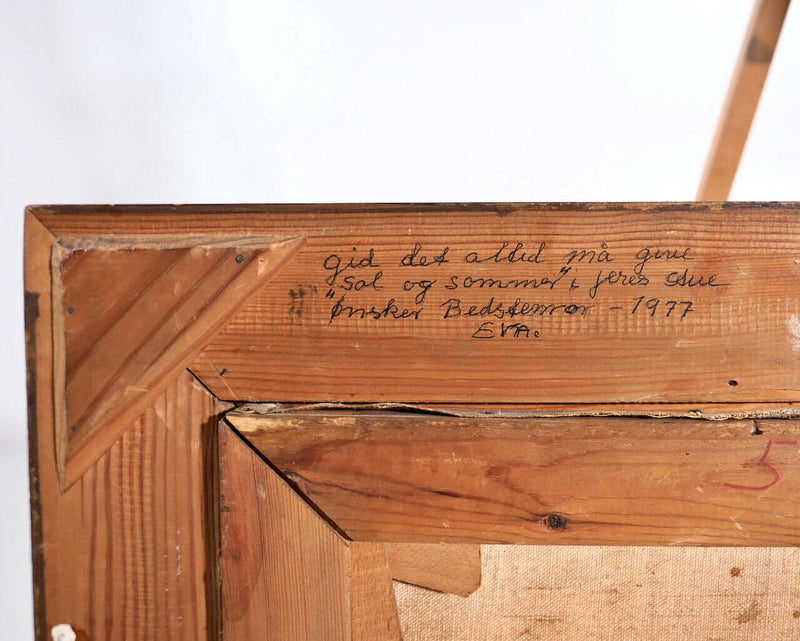 gid det altid må give
"Sol og sommer" i jeres stue
Ønsker Bedstemor - 1977
EVA.
5